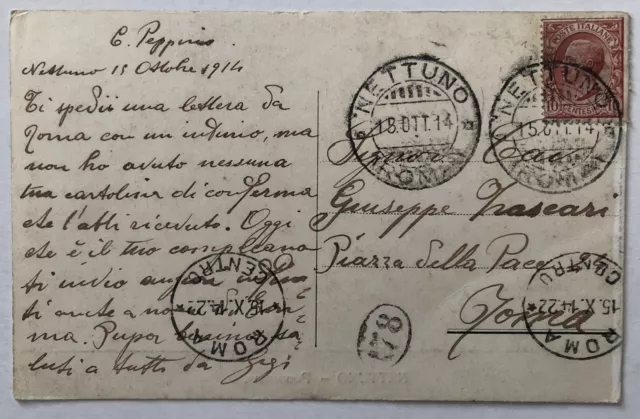 C. Peppino
Nettuno 15 Ottobre 1914
Ti spedii una lettera da
Roma con un indirizzo, ma
non ho avuto nessuna
tua cartolina di conferma
che l'abbi ricevuto. Oggi
che è il tuo compleanno
ti invio auguri
ti anche a nome di
ma. Pupa sa
luti a tutti da Gigi
POSTE ITALIANE
10 CENTESIMI 10
NETTUNO
15.OTT.14
ROMA
NETTUNO
15.OTT.14
ROMA
Signor
Giuseppe Frascari
Piazza della Pace 24
Roma
ROMA CENTRO
15.X.14.22
ROMA CENTRO
15.X.14.22
NETTUNO